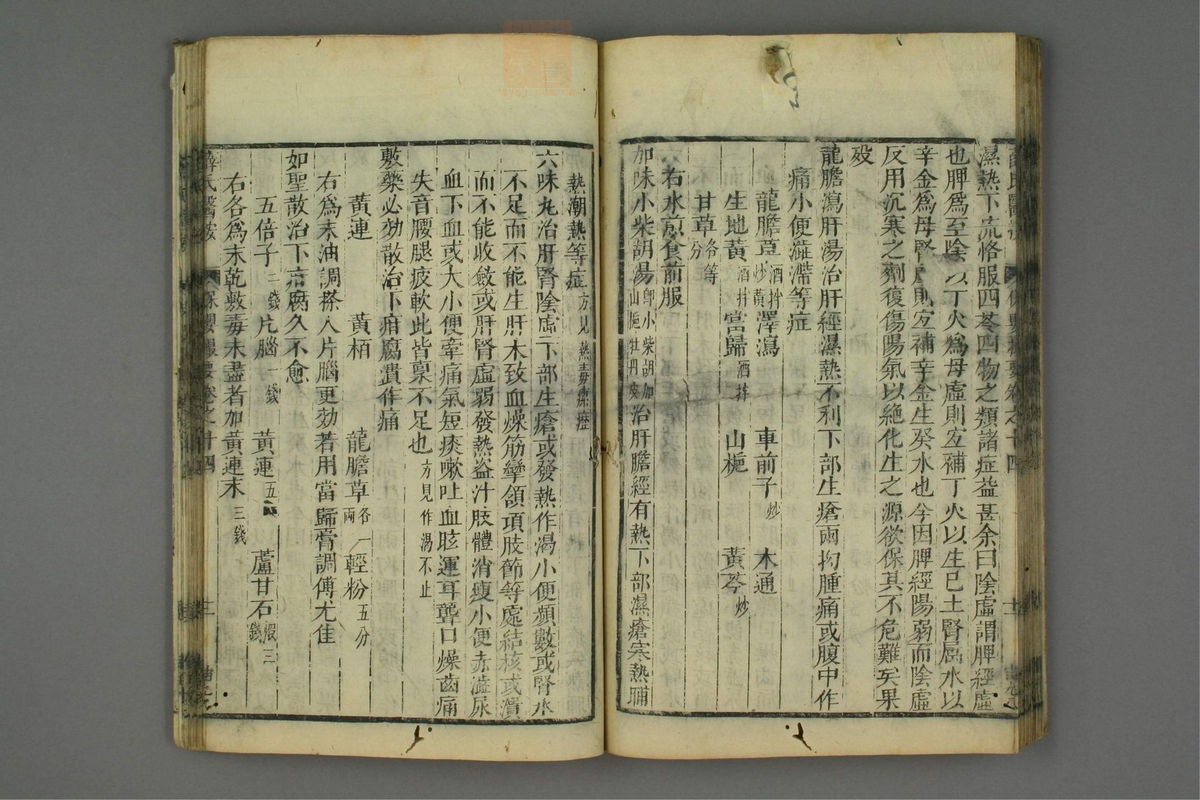 濕熱下流恪服四苓四物之類諸症益甚余曰陰虛謂脾經虛
也脾為至陰以丁火為母虛則宜補丁火以生巳土腎屬水以
辛金為母腎虛則宜補辛金生癸水也今因脾經陽弱而陰虛
反用沉寒之劑復傷陽氣以絶化生之源欲保其不危難矣果
歿
龍膽瀉肝湯治肝經濕熱不利下部生瘡兩拘腫痛或腹中作
痛小便澁滯等症
龍膽草酒拌炒黃 澤瀉 車前子炒 木通
生地黃酒拌 當歸酒拌 山梔 黃芩炒
甘草各等分
右水煎食前服
加味小柴胡湯卽小柴胡加山梔牡丹皮治肝膽經有熱下部濕瘡寒熱晡
熱潮熱等症方見熱毒瘰癧
六味丸治肝腎陰虛下部生瘡或發熱作渴小便頻數或腎水
不足而不能生肝木致血燥筋攣頷項肢節等處結核或潰
而不能收斂或肝腎虛弱發熱盜汁肢體消瘦小便赤澁尿
血下血或大小便牽痛氣短痰嗽吐血眩運耳聾口燥齒痛
失音腰腿疲軟此皆稟不足也方見作渴不止
敷藥必効散治下疳腐潰作痛
黃連 黃栢 龍膽草各一兩 輕粉五分
右為末油調搽入片腦更効若用當歸膏調傅尤佳
如聖散治下疳腐久不愈
五倍子二錢 片腦一錢 黃連五 蘆甘石煅三錢
右各為末乾敷毒未盡者加黃連末三錢
薛氏醫案 保嬰撮要卷之十四